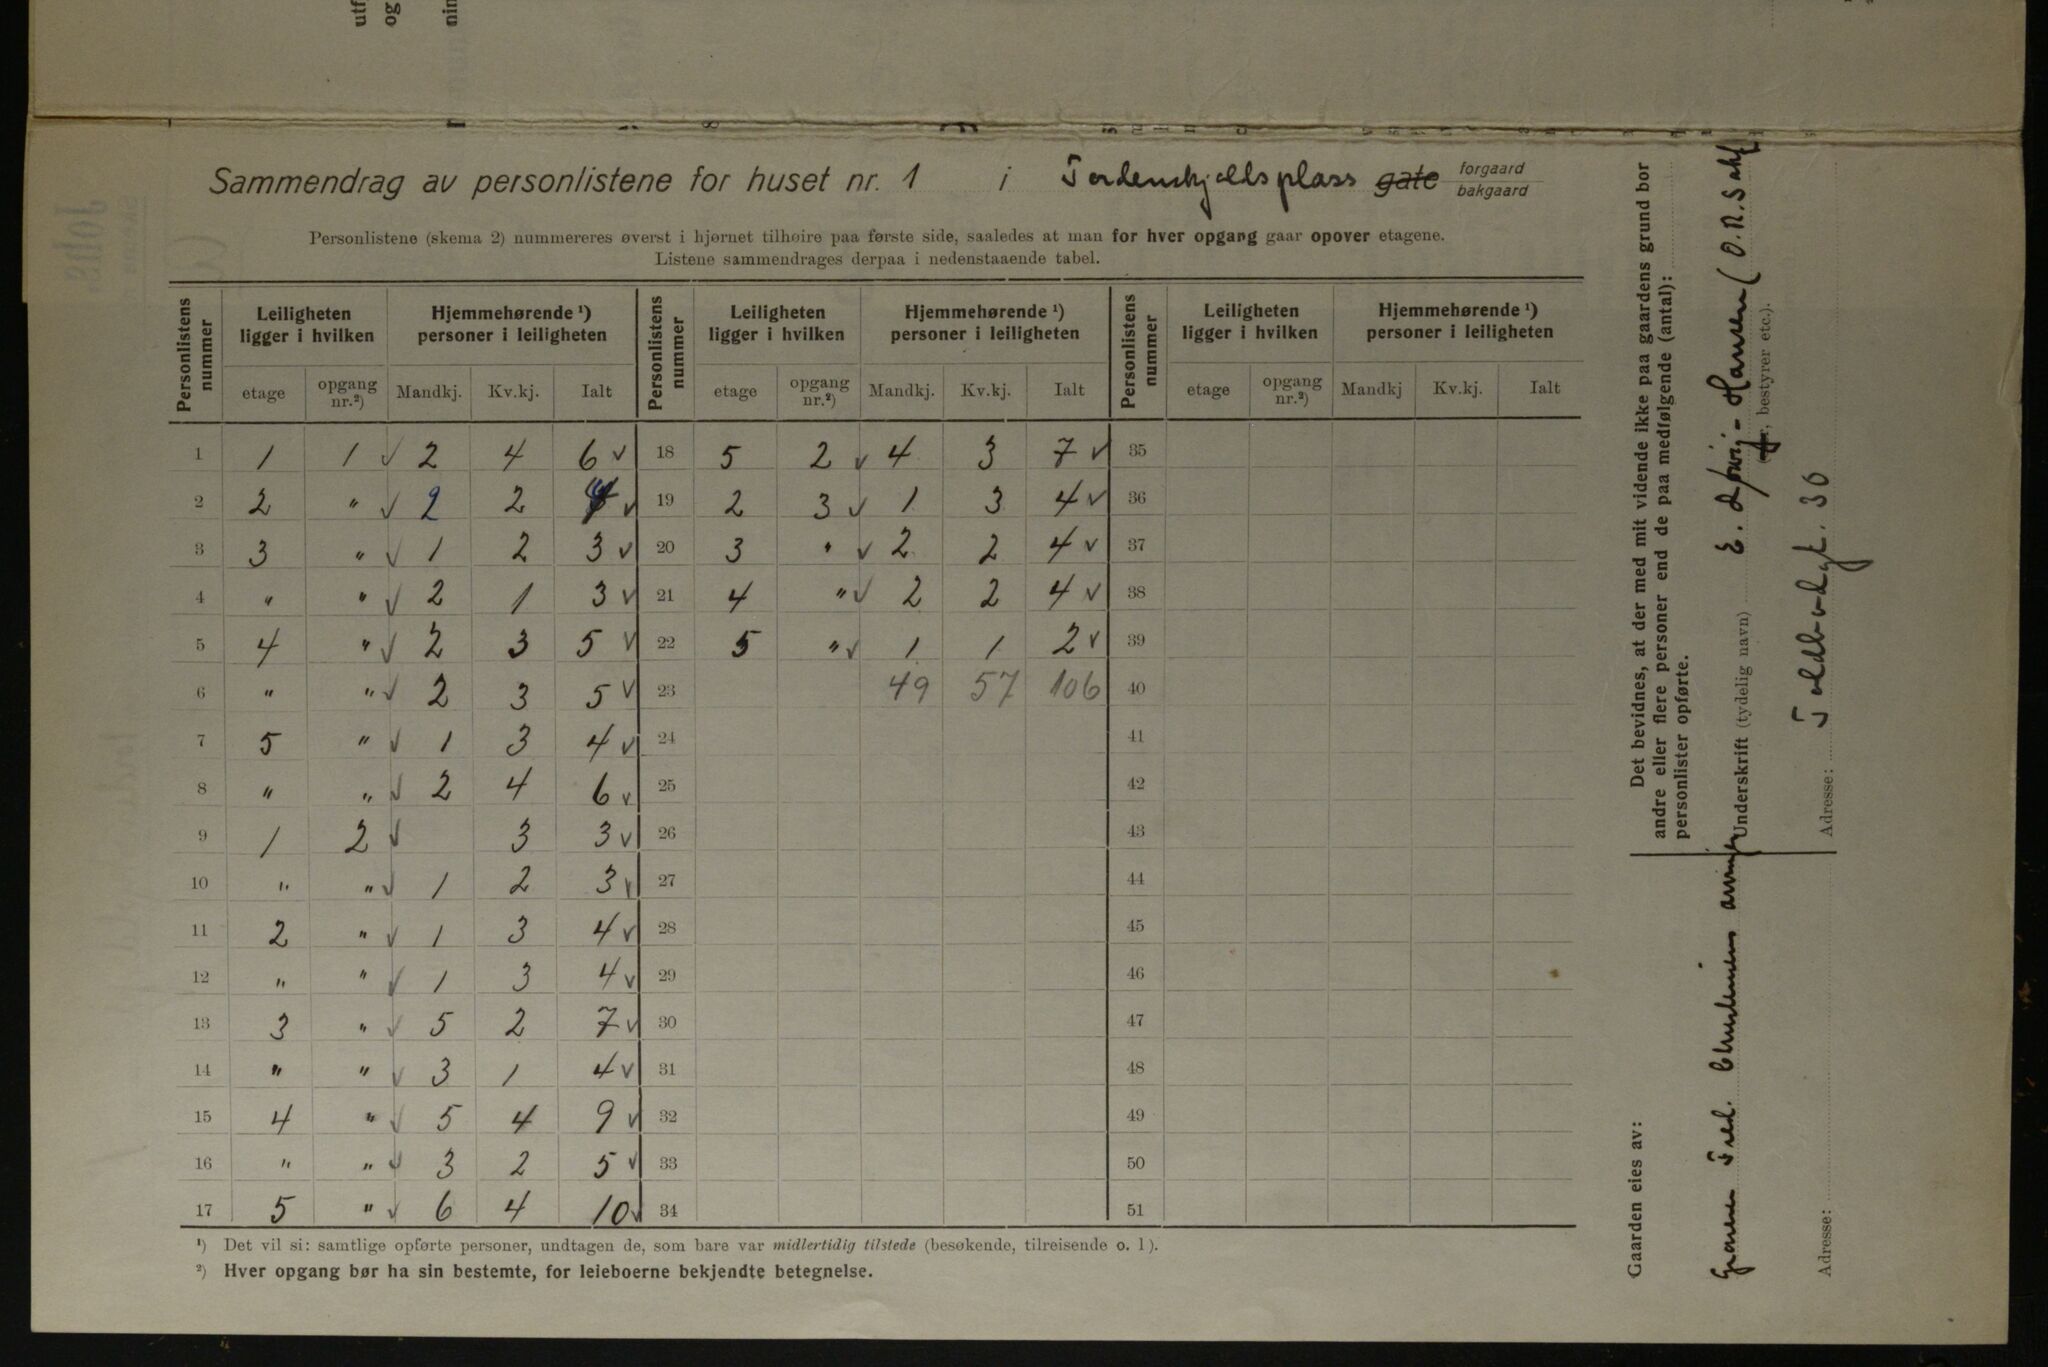 Sammendrag av personlistene for huset nr. 1 i Tordenskjoldsplass gate forgaard bakgaard
Personlistene (skema 2) nummereres øverst i hjørnet tilhøire paa første side, saaledes at man for hver opgang gaar opover etagene.
Listene sammendrages derpaa i nedenstaaende tabel.
Personlistens nummer | Leiligheten ligger i hvilken | Hjemmehørende ¹) personer i leiligheten | Personlistens nummer | Leiligheten ligger i hvilken | Hjemmehørende ¹) personer i leiligheten | Personlistens nummer | Leiligheten ligger i hvilken | Hjemmehørende ¹) personer i leiligheten
etage | opgang nr.²) | Mandkj. | Kv.kj. | Ialt | etage | opgang nr.²) | Mandkj. | Kv.kj. | Ialt | etage | opgang nr.²) | Mandkj | Kv.kj. | Ialt
1 | 1 | 1 ✓ | 2 | 4 | 6 ✓ | 18 | 5 | 2 ✓ | 4 | 3 | 7 ✓ | 35
2 | 2 | " ✓ | 2 | 2 | 4 ✓ | 19 | 2 | 3 ✓ | 1 | 3 | 4 ✓ | 36
3 | 3 | " ✓ | 1 | 2 | 3 ✓ | 20 | 3 | " ✓ | 2 | 2 | 4 ✓ | 37
4 | " | " ✓ | 2 | 1 | 3 ✓ | 21 | 4 | " ✓ | 2 | 2 | 4 ✓ | 38
5 | 4 | " ✓ | 2 | 3 | 5 ✓ | 22 | 5 | " ✓ | 1 | 1 | 2 ✓ | 39
6 | " | " ✓ | 2 | 3 | 5 ✓ | 23 | | | 49 | 57 | 106 | 40
7 | 5 | " ✓ | 1 | 3 | 4 ✓ | 24 | 41
8 | " | " ✓ | 2 | 4 | 6 ✓ | 25 | 42
9 | 1 | 2 ✓ | | 3 | 3 ✓ | 26 | 43
10 | " | " ✓ | 1 | 2 | 3 ✓ | 27 | 44
11 | 2 | " ✓ | 1 | 3 | 4 ✓ | 28 | 45
12 | " | " ✓ | 1 | 3 | 4 ✓ | 29 | 46
13 | 3 | " ✓ | 5 | 2 | 7 ✓ | 30 | 47
14 | " | " ✓ | 3 | 1 | 4 ✓ | 31 | 48
15 | 4 | " ✓ | 5 | 4 | 9 ✓ | 32 | 49
16 | " | " ✓ | 3 | 2 | 5 ✓ | 33 | 50
17 | 5 | " ✓ | 6 | 4 | 10 ✓ | 34 | 51
¹) Det vil si: samtlige opførte personer, undtagen de, som bare var midlertidig tilstede (besøkende, tilreisende o. l).
²) Hver opgang bør ha sin bestemte, for leieboerne bekjendte betegnelse.
Det bevidnes, at der med mit vidende ikke paa gaardens grund bor
andre eller flere personer end de paa medfølgende (antal):
personlister opførte.
Underskrift (tydelig navn) E. Hansen (O.R.Sakf
, bestyrer etc.).
Adresse: Toldbodgt. 30
Gaarden eies av:
Fred.
Adresse: